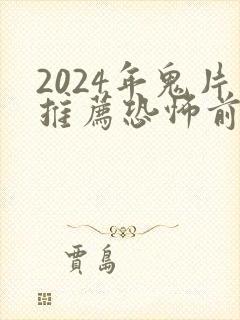 2024年鬼片
推薦恐怖前
賈島